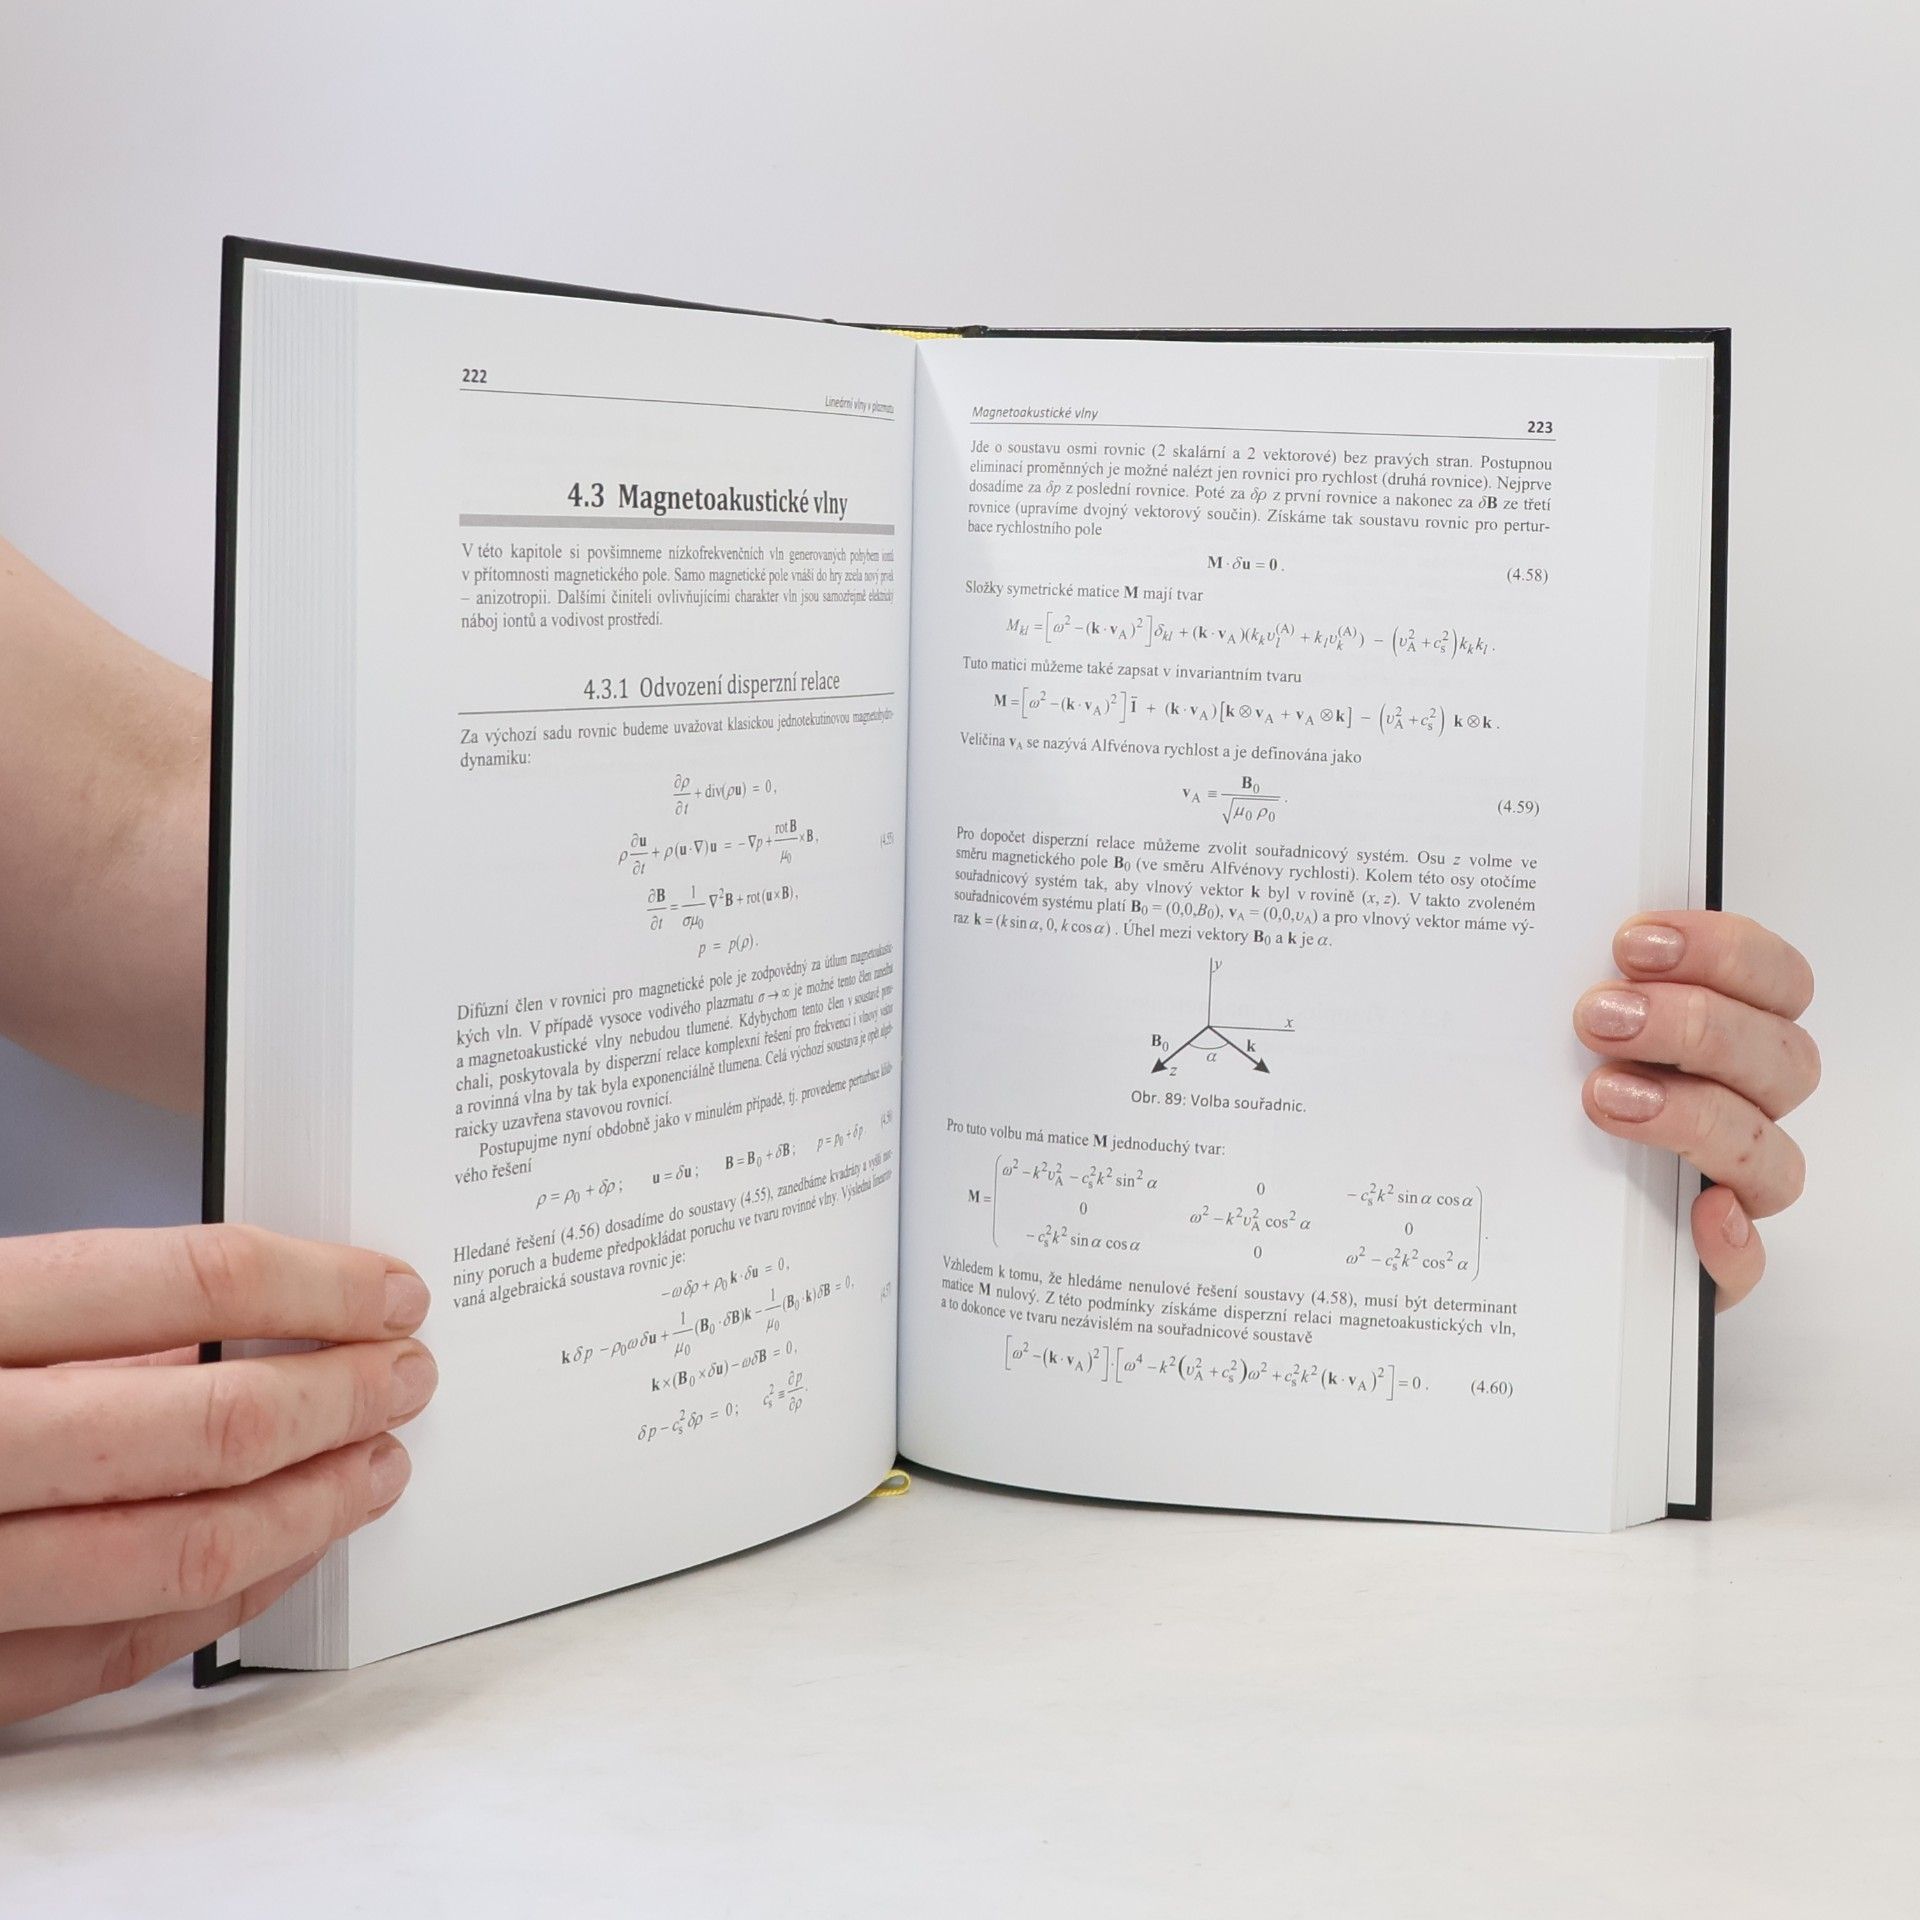 222
Lineární vlny v plazmatu
4.3 Magnetoakustické vlny
V této kapitole si povšimneme nízkofrekvenčních vln generovaných pohybem iontů
v přítomnosti magnetického pole. Samo magnetické pole vnáší do hry zcela nový prvek
– anizotropii. Dalšími činiteli ovlivňujícími charakter vln jsou samozřejmě elektrický
náboj iontů a vodivost prostředí.
4.3.1 Odvození disperzní relace
Za výchozí sadu rovnic budeme uvažovat klasickou jednotekutinovou magnetohydro-
dynamiku:
∂ρ/∂t + div(ρu) = 0,
ρ ∂u/∂t + ρ(u·∇)u = −∇p + rot B/μ₀ × B, (4.55)
∂B/∂t = 1/σμ₀ ∇²B + rot(u×B),
p = p(ρ).
Difúzní člen v rovnici pro magnetické pole je zodpovědný za útlum magnetoakustic-
kých vln. V případě vysoce vodivého plazmatu σ → ∞ je možné tento člen zanedbat
a magnetoakustické vlny nebudou tlumené. Kdybychom tento člen v soustavě pone-
chali, poskytovala by disperzní relace komplexní řešení pro frekvenci i vlnový vektor
a rovinná vlna by tak byla exponenciálně tlumena. Celá výchozí soustava je opět algeb-
raicky uzavřena stavovou rovnicí.
Postupujme nyní obdobně jako v minulém případě, tj. provedeme perturbace klido-
vého řešení
ρ = ρ₀ + δρ ; u = δu ; B = B₀ + δB ; p = p₀ + δp. (4.56)
Hledané řešení (4.56) dosadíme do soustavy (4.55), zanedbáme kvadráty a vyšší moc-
niny poruch a budeme předpokládat poruchu ve tvaru rovinné vlny. Výsledná linearizo-
vaná algebraická soustava rovnic je:
−ω δρ + ρ₀ k·δu = 0,
k δp − ρ₀ω δu + 1/μ₀ (B₀·δB)k − 1/μ₀ (B₀·k)δB = 0, (4.57)
k×(B₀×δu) − ωδB = 0,
δp − cₛ² δρ = 0 ; cₛ² ≡ ∂p/∂ρ.
Magnetoakustické vlny
223
Jde o soustavu osmi rovnic (2 skalární a 2 vektorové) bez pravých stran. Postupnou
eliminací proměnných je možné nalézt jen rovnici pro rychlost (druhá rovnice). Nejprve
dosadíme za δp z poslední rovnice. Poté za δρ z první rovnice a nakonec za δB ze třetí
rovnice (upravíme dvojný vektorový součin). Získáme tak soustavu rovnic pro pertur-
bace rychlostního pole
M·δu = 0 . (4.58)
Složky symetrické matice M mají tvar
M_kl = [ω² − (k·v_A)²]δ_kl + (k·v_A)(k_k v_l^(A) + k_l v_k^(A)) − (v_A² + c_s²)k_k k_l .
Tuto matici můžeme také zapsat v invariantním tvaru
M = [ω² − (k·v_A)²] Ī + (k·v_A)[k⊗v_A + v_A⊗k] − (v_A² + c_s²) k⊗k .
Veličina v_A se nazývá Alfvénova rychlost a je definována jako
v_A ≡ B₀/√(μ₀ρ₀) . (4.59)
Pro dopočet disperzní relace můžeme zvolit souřadnicový systém. Osu z volme ve
směru magnetického pole B₀ (ve směru Alfvénovy rychlosti). Kolem této osy otočíme
souřadnicový systém tak, aby vlnový vektor k byl v rovině (x, z). V takto zvoleném
souřadnicovém systému platí B₀ = (0,0,B₀), v_A = (0,0,v_A) a pro vlnový vektor máme vý-
raz k = (k sin α, 0, k cos α) . Úhel mezi vektory B₀ a k je α.
y
x
B₀
k
α
z
Obr. 89: Volba souřadnic.
Pro tuto volbu má matice M jednoduchý tvar:
ω² − k²v_A² − c_s²k² sin² α 0 − c_s²k² sin α cos α
M = 0 ω² − k²v_A² cos² α 0 .
− c_s²k² sin α cos α 0 ω² − c_s²k² cos² α
Vzhledem k tomu, že hledáme nenulové řešení soustavy (4.58), musí být determinant
matice M nulový. Z této podmínky získáme disperzní relaci magnetoakustických vln,
a to dokonce ve tvaru nezávislém na souřadnicové soustavě
[ω² − (k·v_A)²]·[ω⁴ − k²(v_A² + c_s²)ω² + c_s²k²(k·v_A)²] = 0 . (4.60)